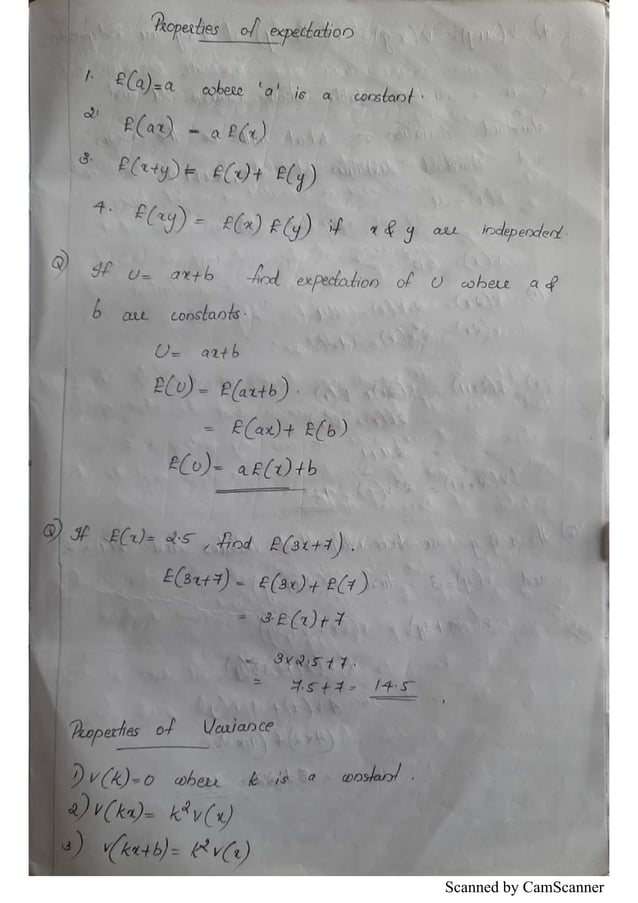 Properties of expectation
1. E(a)=a where 'a' is a constant.
2. E(ax) = a E(x)
3. E(x+y) = E(x)+ E(y)
4. E(xy) = E(x) E(y) if x & y are independent.
Q) If U= ax+b find expectation of U where a &
b are constants.
U= ax+b
E(U) = E(ax+b).
= E(ax)+ E(b)
E(U)= a E(x)+b
Q) If E(x)= 2.5, find E(3x+7).
E(3x+7) = E(3x)+ E(7)
= 3E(x)+7
= 3x2.5+7.
= 7.5+7= 14.5
Properties of Variance
1) V(k)=0 where k is a constant.
2) V(kx)= k²V(x)
3) V(kx+b)= k²V(x)
Scanned by CamScanner